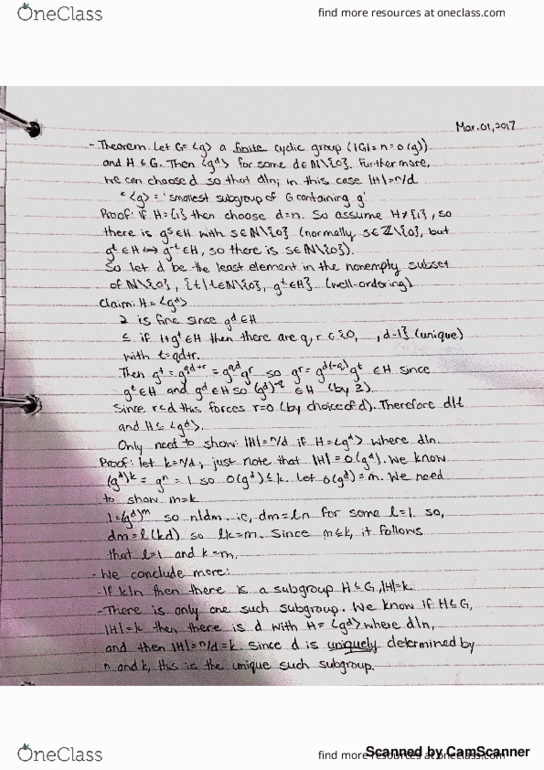 OneClass
find more resources at oneclass.com
Mar.01,2017
- Theorem. Let G=⟨g⟩ a finite cyclic group (|G|=n=o(g))
and H≤G. Then ⟨gᵈ⟩ for some d∈ℕ\{0}. Furthermore,
we can choose d so that d|n; in this case |H|=n/d
"⟨g⟩ = 'smallest subgroup of G containing g'
Proof: if H={1} then choose d=n. So assume H≠{1}, so
there is gˢ∈H with s∈ℕ\{0} (normally s∈ℤ\{0}, but
gᵗ∈H ⟺ g⁻ᵗ∈H, so there is s∈ℕ\{0}).
So let d be the least element in the nonempty subset
of ℕ\{0}, {t|t∈ℕ\{0}, gᵗ∈H} (well-ordering)
Claim: H=⟨gᵈ⟩
≥ is fine since gᵈ∈H
≤ if 1≠gᵗ∈H then there are q,r∈{0, ,d-1} (unique)
with t=qd+r.
Then gᵗ=g^(qd+r)=g^(qd)gʳ so gʳ=g^(d(-q))gᵗ ∈H since
gᵗ∈H and gᵈ∈H so (gᵈ)^(-q) ∈H (by ≥).
Since r<d this forces r=0 (by choice of d). Therefore d|t
and H≤⟨gᵈ⟩.
Only need to show: |H|=n/d if H=⟨gᵈ⟩ where d|n.
Proof: let k=n/d, just note that |H|=o(gᵈ). We know
(gᵈ)ᵏ=gⁿ=1 so o(gᵈ)≤k. Let o(gᵈ)=m. We need
to show m=k.
1=(gᵈ)ᵐ so n|dm. ie, dm=ln for some l=1. so,
dm=l(kd) so lk=m. Since m≤k, it follows
that l=1 and k=m.
- We conclude more:
- If k|n then there is a subgroup H≤G, |H|=k.
- There is only one such subgroup. We know if H≤G,
|H|=k then there is d with H=⟨gᵈ⟩ where d|n,
and then |H|=n/d=k. Since d is uniquely determined by
n and k, this is the unique such subgroup.
OneClass
find more resources at oneclass.com
Scanned by CamScanner